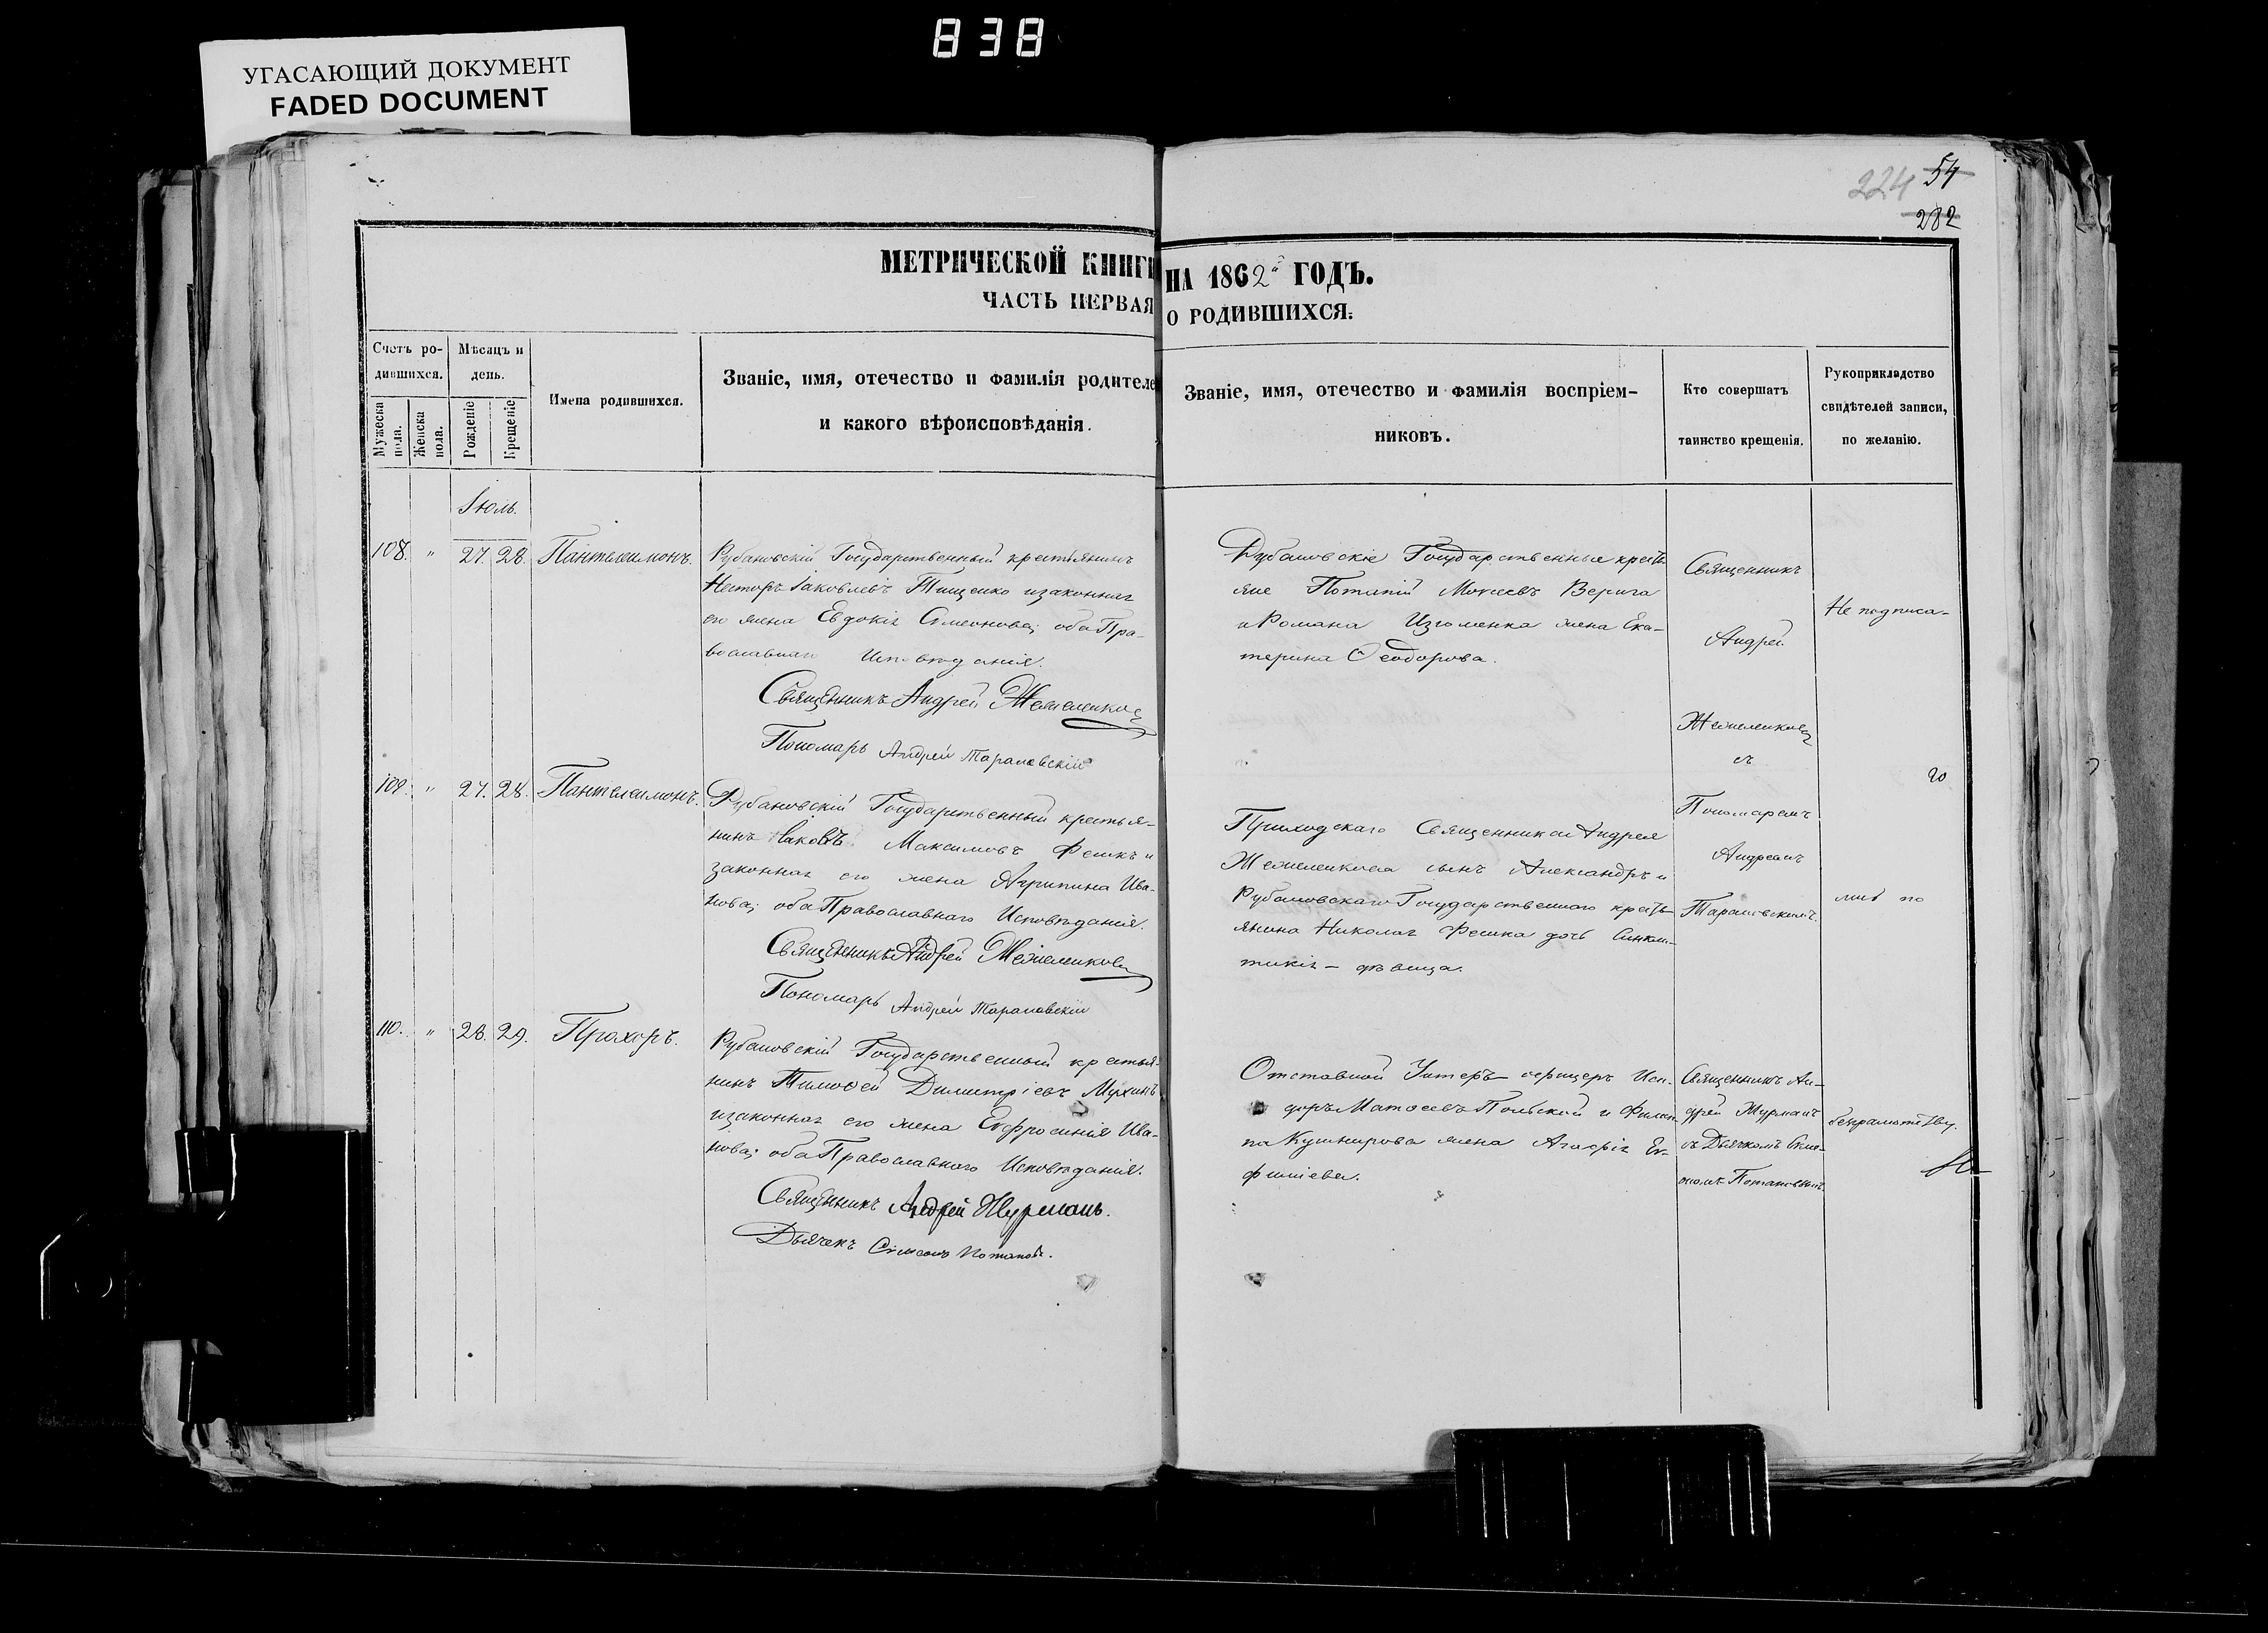 838
УГАСАЮЩИЙ ДОКУМЕНТ
FADED DOCUMENT
224 54
282
МЕТРИЧЕСКОЙ КНИГИ НА 1862й ГОДЪ.
ЧАСТЬ ПЕРВАЯ О РОДИВШИХСЯ.
Счетъ ро-
дившихся.
Мужеска
пола.
Женска
пола.
Мѣсяцъ и
день.
Рожденіе
Крещеніе
Имена родившихся.
Званіе, имя, отечество и фамилія родителе
и какого вѣроисповѣданія.
Званіе, имя, отечество и фамилія воспріем-
никовъ.
Кто совершатъ
таинство крещенія.
Рукоприкладство
свидѣтелей записи,
по желанію.
Іюль.
108. " 27. 28. Пантелеимонъ.
Рубановскій Государственный крестьянинъ
Несторъ Іаковлевъ Тищенко и законная
его жена Евдокія Симеонова; оба Пра-
вославнаго Исповѣданія.
Священникъ Андрей Жежеленковъ
Пономарь Андрей Тарановскій
Рубановскіе Государственные кресть
яне Потапій Моисеевъ Верига
и Романа жена Ека-
терина Ѳеодорова.
Священникъ
Андрей
Жежеленковъ
съ
Пономаремъ
Андреемъ
Тарановскимъ.
109. " 27. 28. Пантелеимонъ.
Рубановскій Государственный крестья-
нинъ Іаковъ Максимовъ Фешкъ и
законная его жена Агрипина Ива-
нова; оба Православнаго Исповѣданія.
Священникъ Андрей Жежеленковъ
Пономарь Андрей Тарановскій
Приходскаго Священника Андрея
Жежеленкова сынъ Александръ и
Рубановскаго Государственнаго кресть
янина Николая Фешка дочь Синкли-
тикія – дѣвица.
110. " 28. 29. Прохоръ.
Рубановскій Государственный крестья-
нинъ Тимоѳей Димитріевъ Мухинъ
и законная его жена Евфросинія Ива-
нова; оба Православнаго Исповѣданія.
Священникъ Андрей Журманъ.
Дьячекъ Симеонъ Потаповъ.
Отставной Унтеръ-офицеръ Иси-
доръ Матѳеевъ Польской и Филип-
па Кушнирова жена Агафія Ев-
фиміева.
Священникъ Ан-
дрей Журманъ
съ Дьячкомъ Симе-
ономъ Потаповымъ.
Не подписа-
лись по
безграмотству.